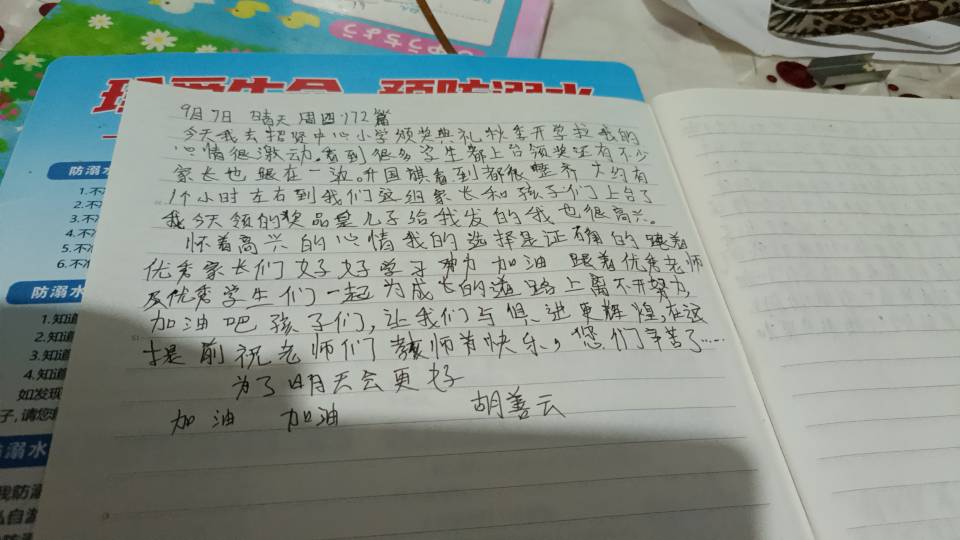 ゅうちょう
珍爱生命 预防溺水
9月7日 晴天 周四 172篇
今天我去招贤中心小学颁奖典礼秋季开学我的
心情很激动.看到很多学生都上台领奖还有不少
家长也跟在一边。升国旗看到都很整齐 大约有
1个小时左右到我们这组家长和孩子们上台了
我今天领的奖品是儿子给我发的我也很高兴。
怀着高兴的心情我的选择是证确的 跟着
优秀家长们好好学习 努力 加油 跟着优秀老师
及优秀学生们一起为成长的道路上离不开努力,
加油吧孩子们,让我们与俱进更辉煌,在这
提前祝老师们 教师节快乐,您们辛苦了……
为了明天会更好
加油 加油 胡善云
防溺水
1.不
2.不
3.不
4.不
5.不
6.不
防溺水
1.知道
2.知道
3.知道
4.知道
如发现
子,请您
防溺水
我防溺
私自游